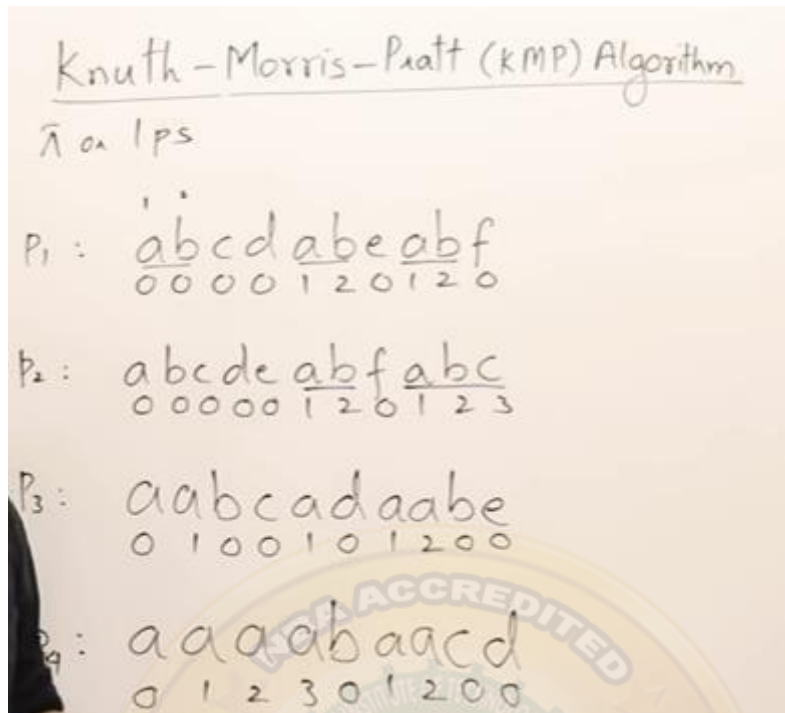 Knuth-Morris-Pratt (KMP) Algorithm
π or lps
P1 : abcdabeabf
0 0 0 0 1 2 0 1 2 0
P2 : abcdeabfabc
0 0 0 0 0 1 2 0 1 2 3
P3 : aabcadaabe
0 1 0 0 1 0 1 2 0 0
P4 : aaaabaacd
0 1 2 3 0 1 2 0 0
ACCREDITED